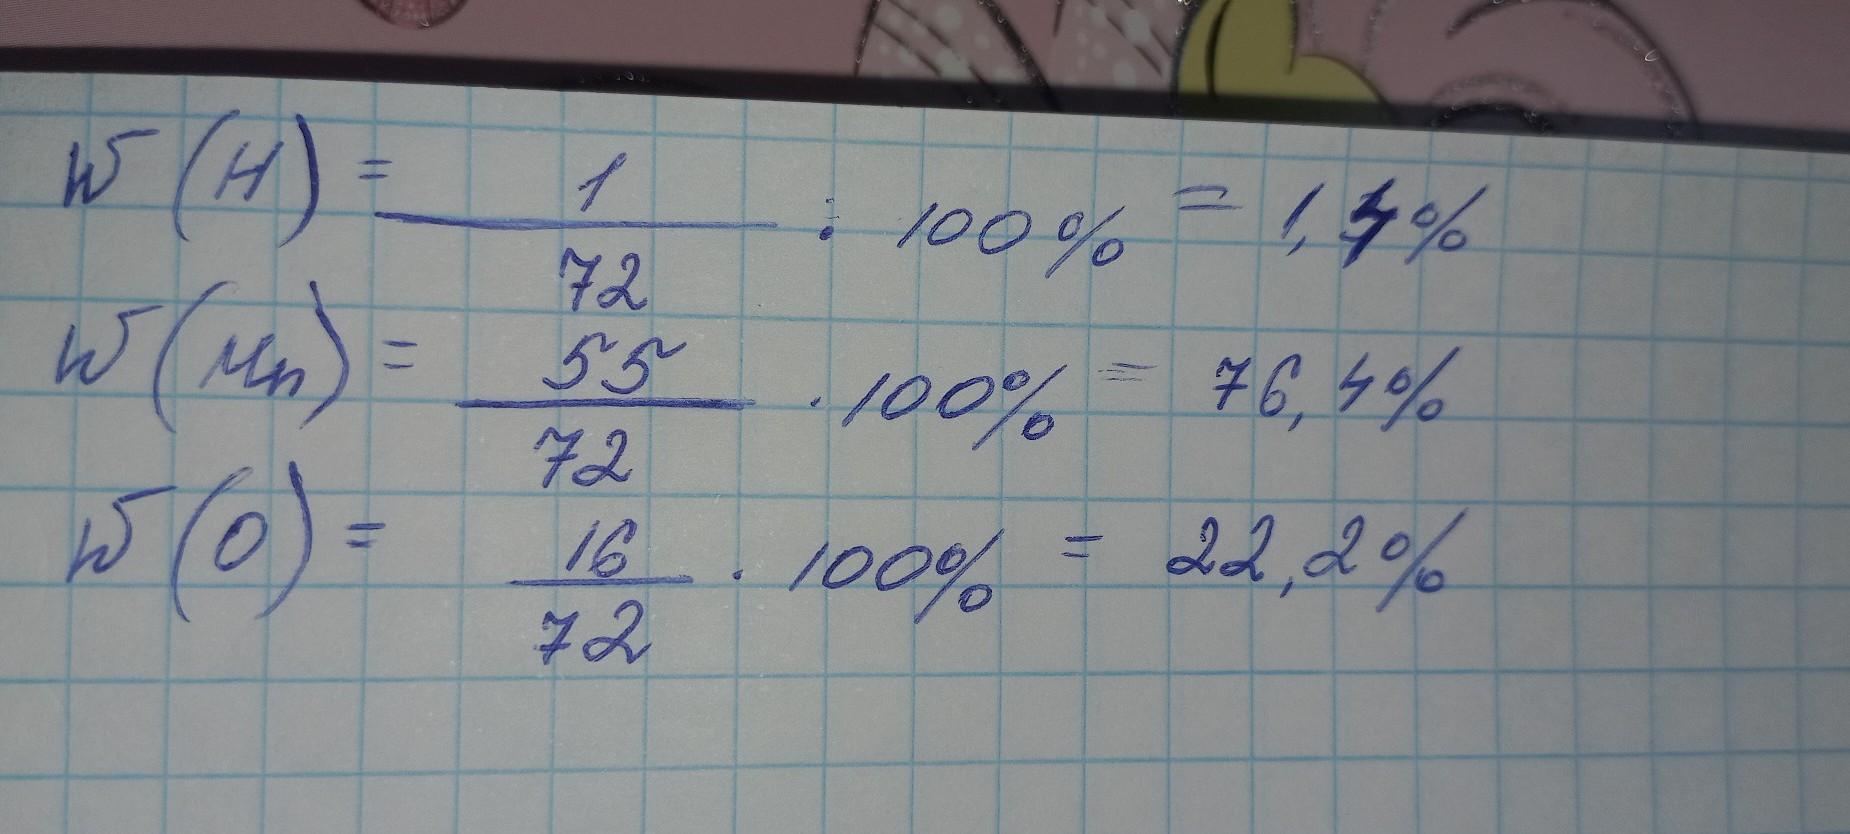 W (H) = 1/72 : 100% = 1,4%
W (Mn) = 55/72 · 100% = 76,4%
W (O) = 16/72 · 100% = 22,2%